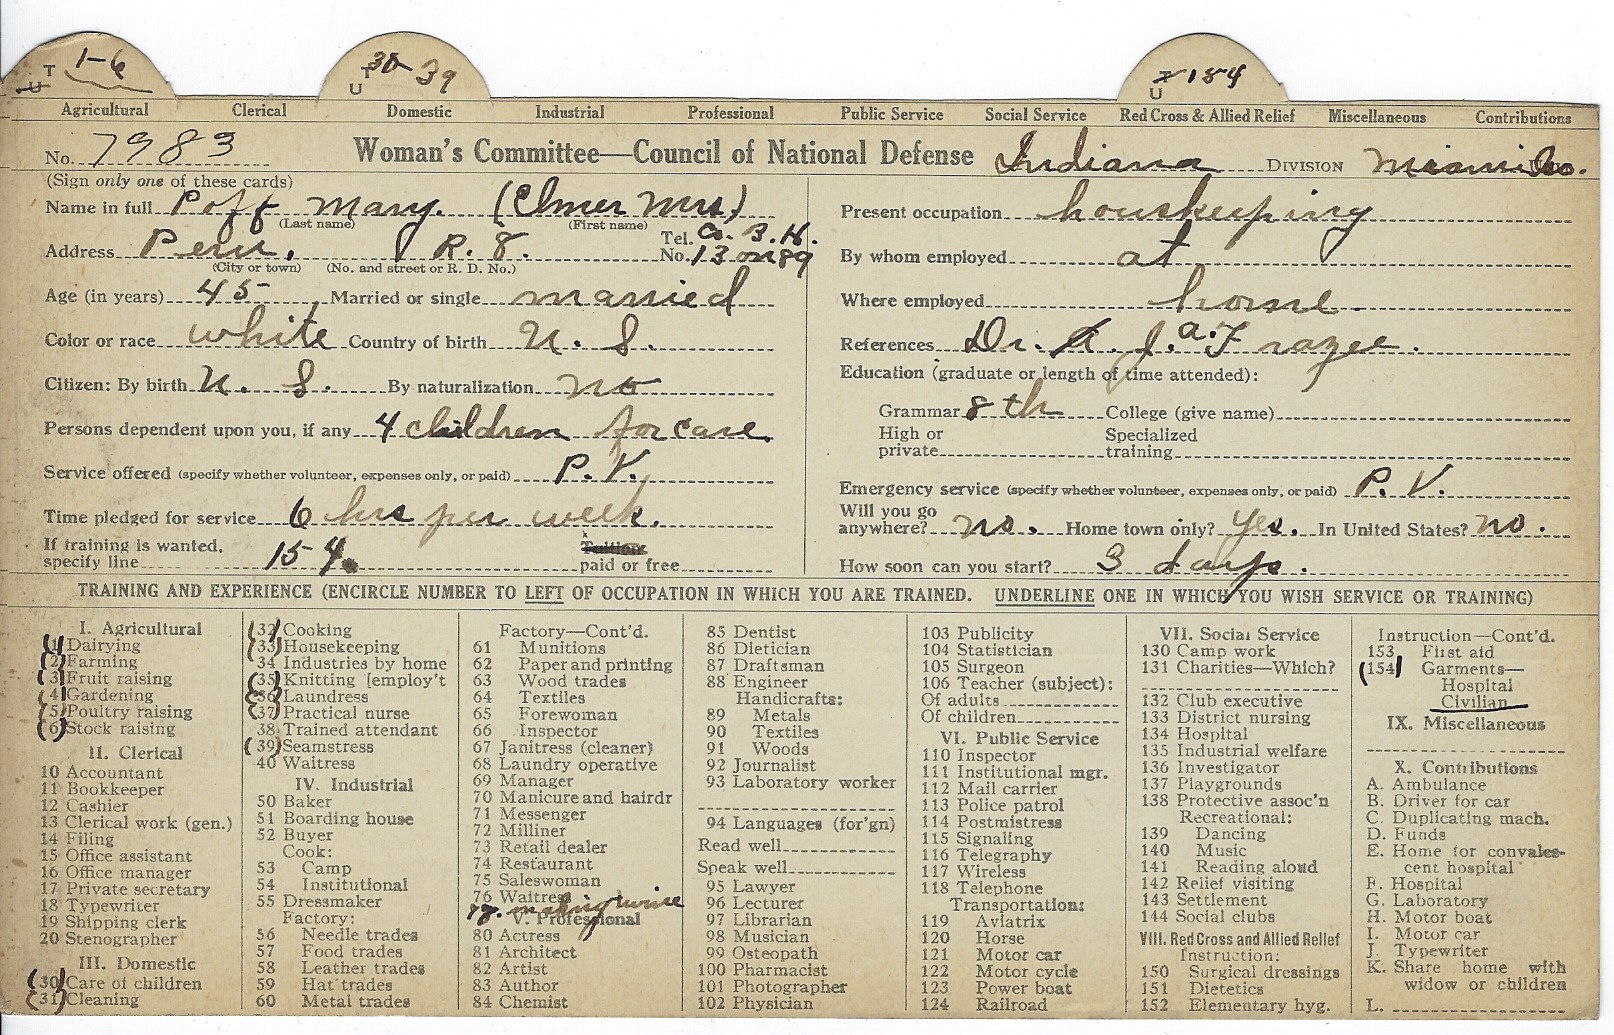 T 1-6 U
T 30-39 U
T 154 U
Agricultural Clerical Domestic Industrial Professional Public Service Social Service Red Cross & Allied Relief Miscellaneous Contributions
No. 7983 Woman's Committee—Council of National Defense Indiana DIVISION Miami Co.
(Sign only one of these cards)
Name in full Poff Mary. (Elmer Mrs)
(Last name) (First name)
Address Peru, R. 8. Tel. No. 13 on 89
(City or town) (No. and street or R. D. No.)
Age (in years) 45 Married or single married
Color or race white Country of birth U. S.
Citizen: By birth U. S. By naturalization no
Persons dependent upon you, if any 4 children for care
Service offered (specify whether volunteer, expenses only, or paid) P. V.
Time pledged for service 6 hrs per week.
If training is wanted, specify line 154 Tuition paid or free
Present occupation houskeeping
By whom employed at
Where employed home.
References Dr. A. J. a. Frazee.
Education (graduate or length of time attended):
Grammar 8th College (give name)
High or private Specialized training
Emergency service (specify whether volunteer, expenses only, or paid) P. V.
Will you go anywhere? no. Home town only? Yes. In United States? no.
How soon can you start? 3 days.
TRAINING AND EXPERIENCE (ENCIRCLE NUMBER TO LEFT OF OCCUPATION IN WHICH YOU ARE TRAINED. UNDERLINE ONE IN WHICH YOU WISH SERVICE OR TRAINING)
I. Agricultural
(1) Dairying
(2) Farming
(3) Fruit raising
(4) Gardening
(5) Poultry raising
(6) Stock raising
II. Clerical
10 Accountant
11 Bookkeeper
12 Cashier
13 Clerical work (gen.)
14 Filing
15 Office assistant
16 Office manager
17 Private secretary
18 Typewriter
19 Shipping clerk
20 Stenographer
III. Domestic
(30) Care of children
(31) Cleaning
(32) Cooking
(33) Housekeeping
34 Industries by home
(35) Knitting [employ't
(36) Laundress
(37) Practical nurse
38 Trained attendant
(39) Seamstress
40 Waitress
IV. Industrial
50 Baker
51 Boarding house
52 Buyer
Cook:
53 Camp
54 Institutional
55 Dressmaker
Factory:
56 Needle trades
57 Food trades
58 Leather trades
59 Hat trades
60 Metal trades
Factory—Cont'd.
61 Munitions
62 Paper and printing
63 Wood trades
64 Textiles
65 Forewoman
66 Inspector
67 Janitress (cleaner)
68 Laundry operative
69 Manager
70 Manicure and hairdr
71 Messenger
72 Milliner
73 Retail dealer
74 Restaurant
75 Saleswoman
76 Waitress
making
V. Professional
80 Actress
81 Architect
82 Artist
83 Author
84 Chemist
85 Dentist
86 Dietician
87 Draftsman
88 Engineer
Handicrafts:
89 Metals
90 Textiles
91 Woods
92 Journalist
93 Laboratory worker
94 Languages (for'gn)
Read well
Speak well
95 Lawyer
96 Lecturer
97 Librarian
98 Musician
99 Osteopath
100 Pharmacist
101 Photographer
102 Physician
103 Publicity
104 Statistician
105 Surgeon
106 Teacher (subject):
Of adults
Of children
VI. Public Service
110 Inspector
111 Institutional mgr.
112 Mail carrier
113 Police patrol
114 Postmistress
115 Signaling
116 Telegraphy
117 Wireless
118 Telephone
Transportation:
119 Aviatrix
120 Horse
121 Motor car
122 Motor cycle
123 Power boat
124 Railroad
VII. Social Service
130 Camp work
131 Charities—Which?
132 Club executive
133 District nursing
134 Hospital
135 Industrial welfare
136 Investigator
137 Playgrounds
138 Protective assoc'n
Recreational:
139 Dancing
140 Music
141 Reading aloud
142 Relief visiting
143 Settlement
144 Social clubs
VIII. Red Cross and Allied Relief
Instruction:
150 Surgical dressings
151 Dietetics
152 Elementary hyg.
Instruction—Cont'd.
153 First aid
(154) Garments—
Hospital
Civilian
IX. Miscellaneous
X. Contributions
A. Ambulance
B. Driver for car
C. Duplicating mach.
D. Funds
E. Home for convales-
cent hospital
F. Hospital
G. Laboratory
H. Motor boat
I. Motor car
J. Typewriter
K. Share home with
widow or children
L.